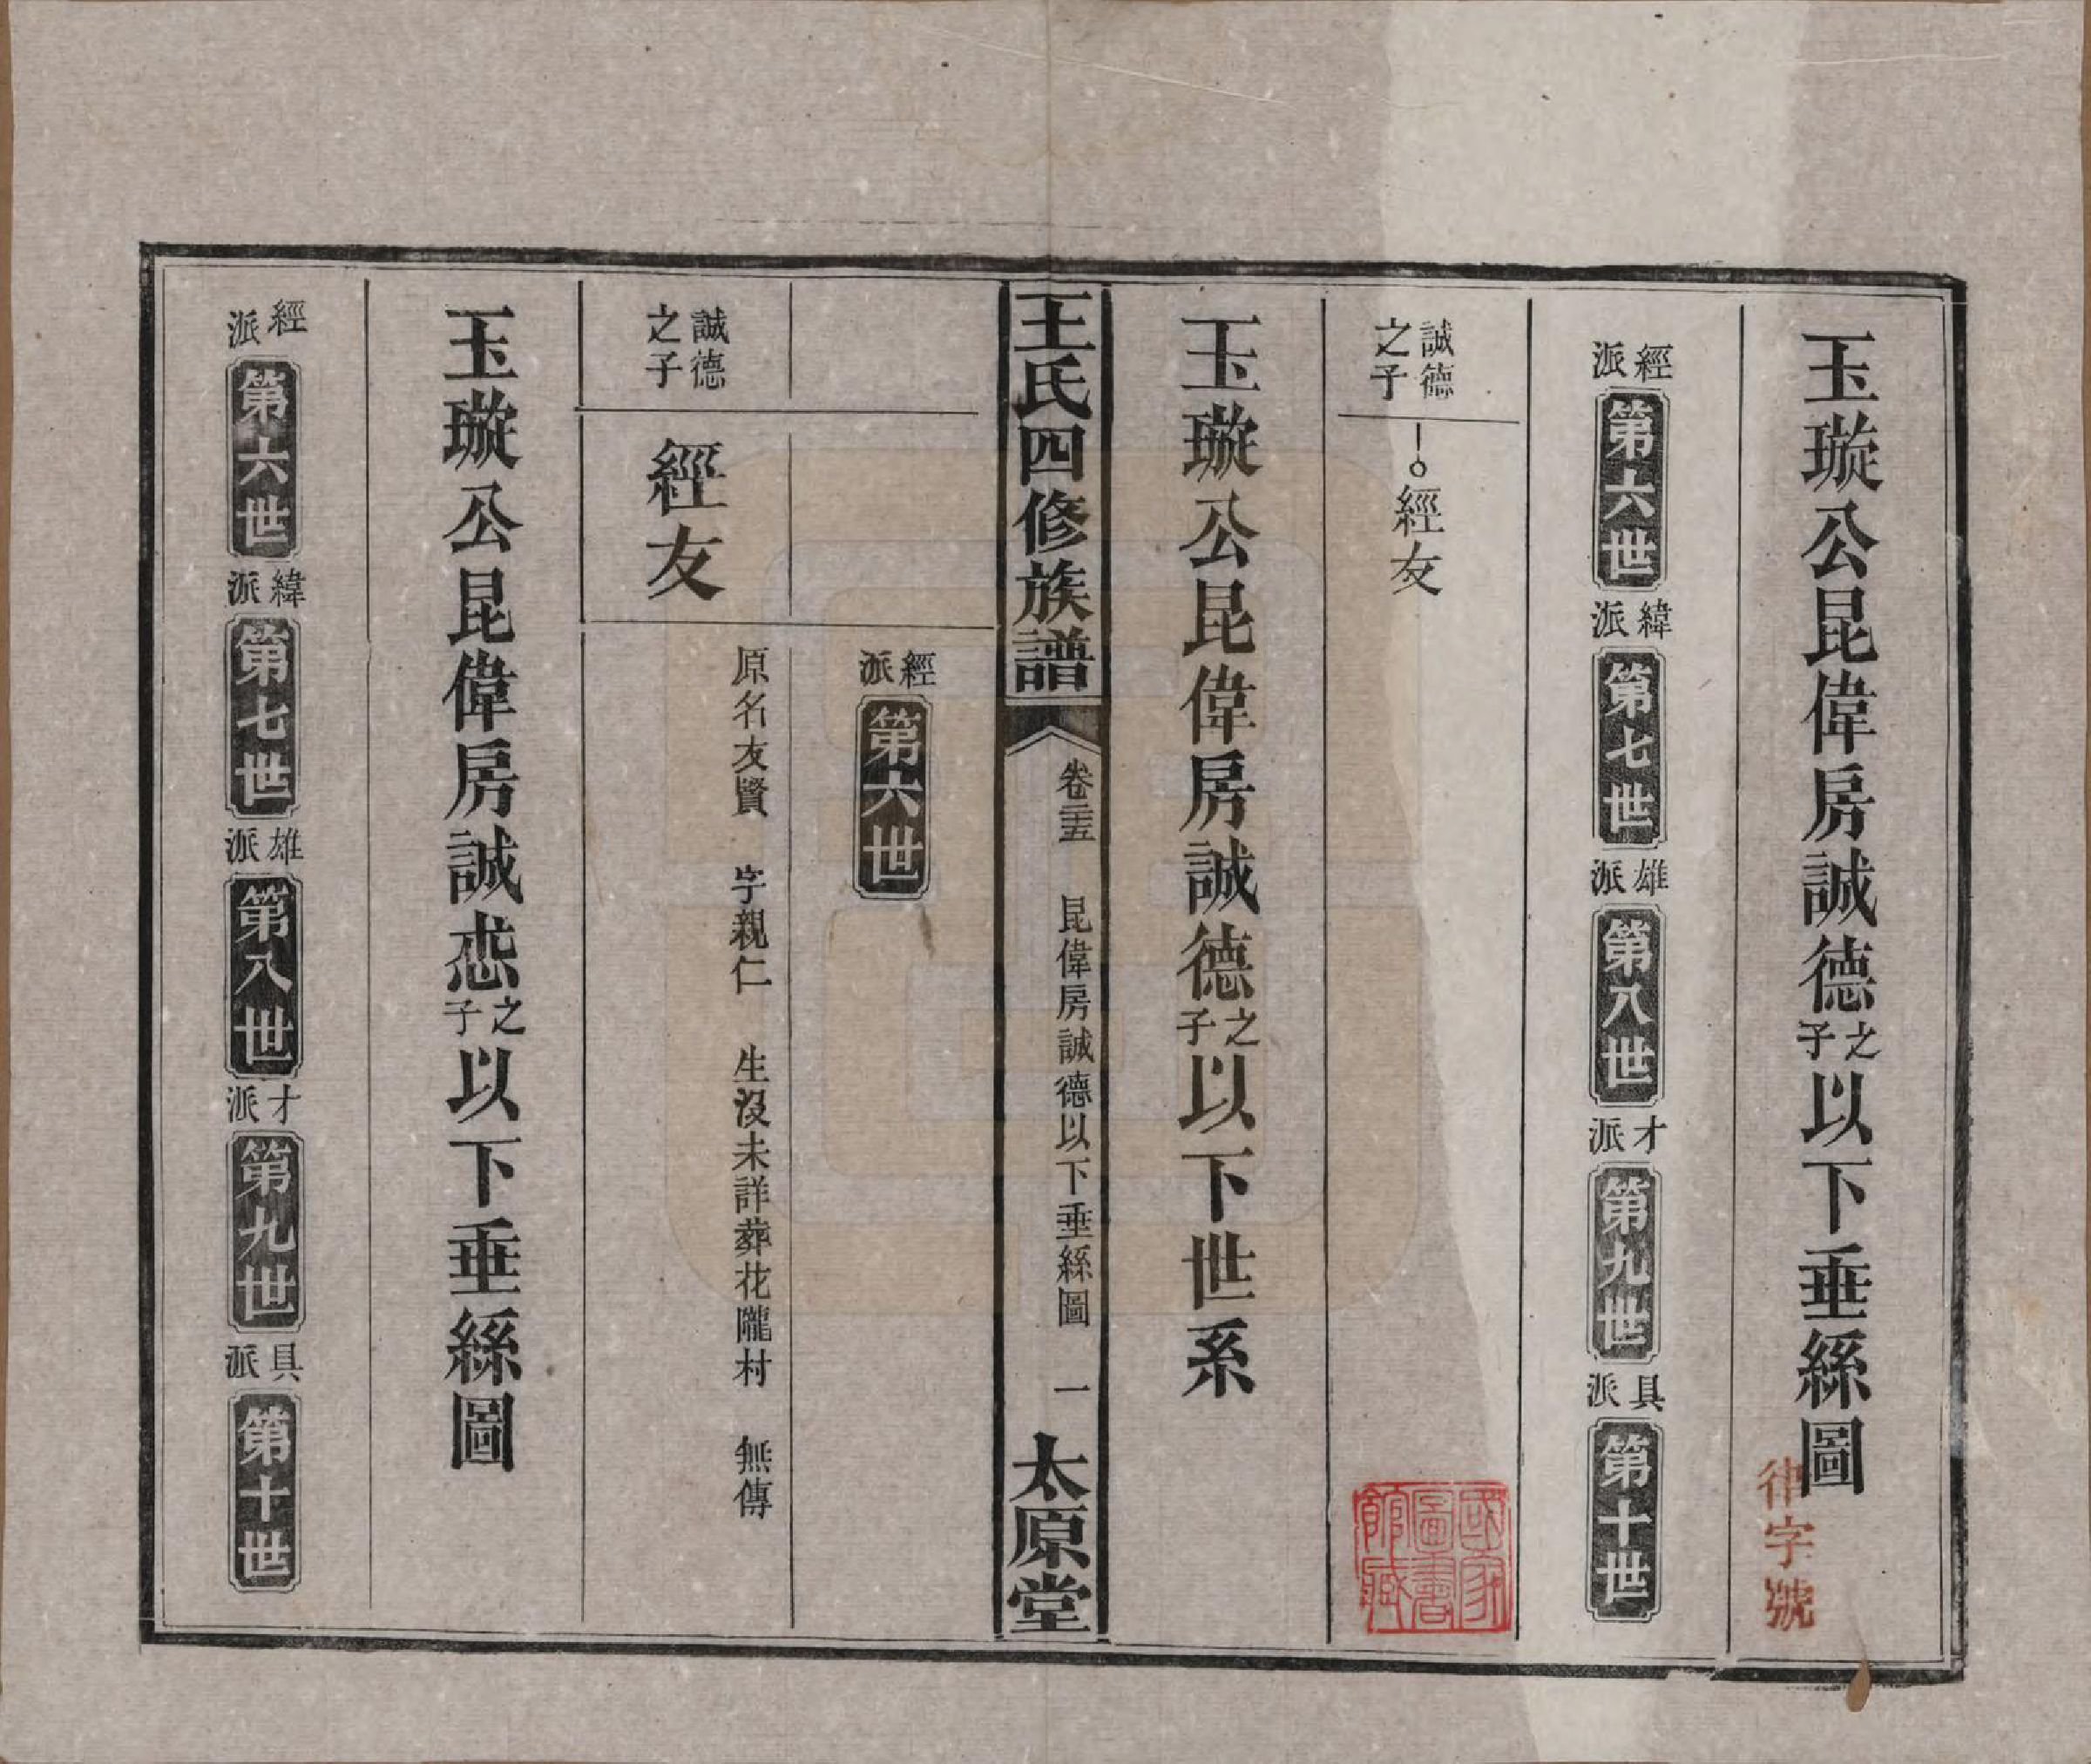 玉璇公昆偉房誠德之子以下垂絲圖
律字號
經派第六世緯派第七世雄派第八世才派第九世具派第十世
誠德之子
經友
國家圖書館藏
玉璇公昆偉房誠德之子以下世系
王氏四修族譜
卷三五 昆偉房誠德以下垂絲圖 一
太原堂
經派第六世
誠德之子
經友
原名友賢 字親仁 生沒未詳葬花隴村 無傳
玉璇公昆偉房誠恋之子以下垂絲圖
經派第六世緯派第七世雄派第八世才派第九世具派第十世